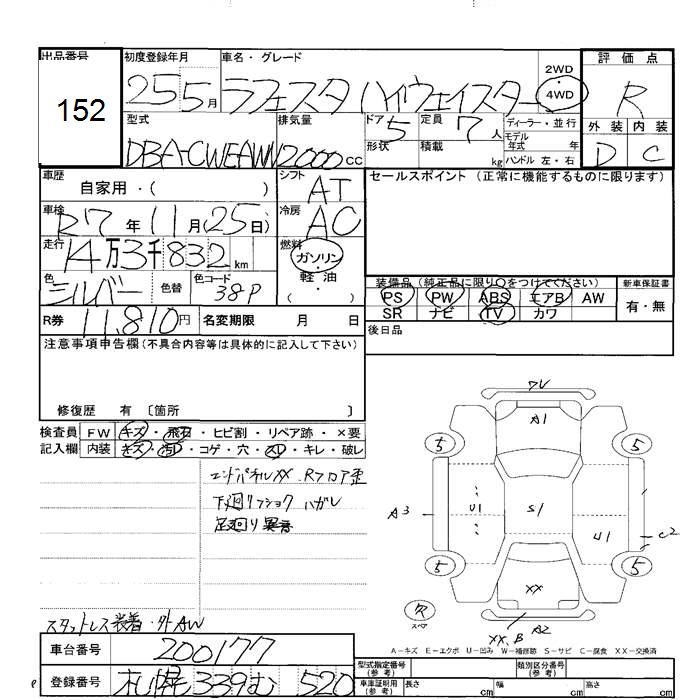 出品番号
152
初度登録年月
25 5月
車名・グレード
ラフェスタ ハイウェイスター
2WD
4WD
評価点
R
型式
DBA-CWEAWN
排気量
2000cc
ドア 5
形状
定員 7人
積載 kg
ディーラー・並行
モデル年式 年
ハンドル 左・右
外装 内装
D C
車歴
自家用・( )
シフト
AT
セールスポイント (正常に機能するものに限ります)
車検
R7年11月(25日)
冷房
AC
走行
14万3千832km
燃料
ガソリン
軽油
( )
色
シルバー
色替
色コード
38P
装備品 (純正品に限り○をつけてください)
PS PW ABS エアB AW
SR ナビ TV カワ
新車保証書
有・無
R券 11,810円
名変期限 月 日
後日品
注意事項申告欄(不具合内容等は具体的に記入して下さい)
修復歴 有 〔箇所 〕
検査員 FW キズ・飛石・ヒビ割・リペア跡・×要
記入欄 内装 キズ・汚D・コゲ・穴・スレ・キレ・破レ
エンドパネルXX Rフロア歪
下廻リフショク ハガレ
足廻り異音
ワレ
A1
5 5
A3 U1 S1 U1 C2
5 5
XX
XX, B A2
スペア
スタットレス装着・外AW
A-キズ E-エクボ U-凹み W-補修跡 S-サビ C-腐食 XX-交換済
車台番号
200177
登録番号
札幌 339 む 520
型式指定番号
(参考)
類別区分番号
(参考)
車庫証明用
(参考)
長さ cm
幅 cm
高さ cm